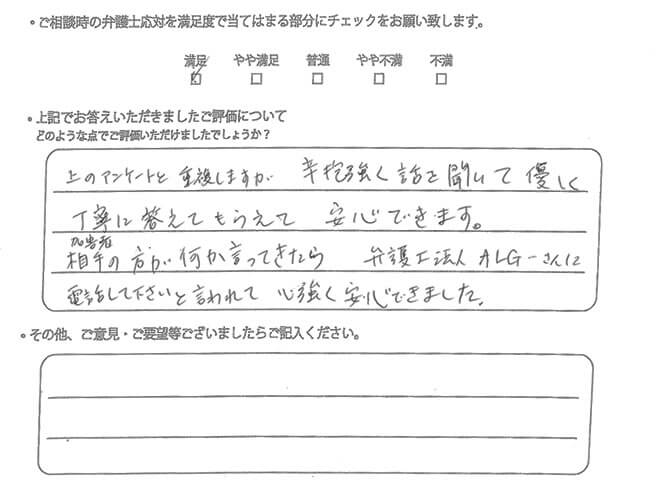 ・ご相談時の弁護士応対を満足度で当てはまる部分にチェックをお願い致します。
満足 やや満足 普通 やや不満 不満
・上記でお答えいただきましたご評価について
どのような点でご評価いただけましたでしょうか？
上のアンケートと重複しますが 辛抱強く話を聞いて優しく
丁寧に答えてもらえて 安心できます。
加害者
相手の方が何か言ってきたら 弁護士法人ALGーさんに
電話して下さいと言われて 心強く安心できました。
・その他、ご意見・ご要望等ございましたらご記入ください。